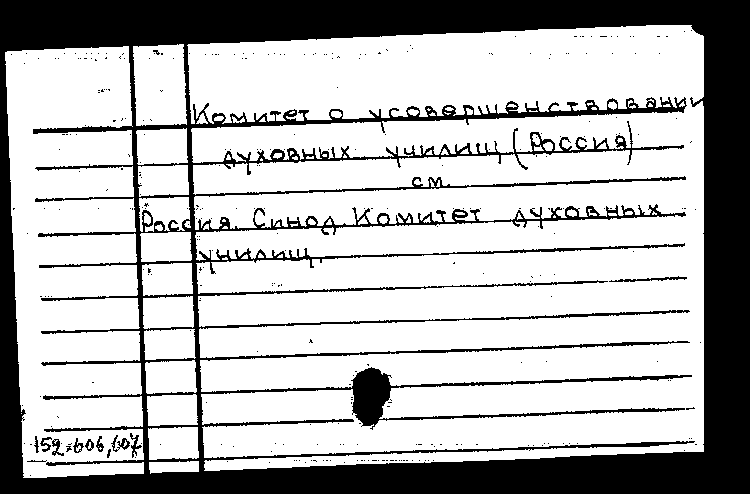 Комитет о усовершенствовании
духовных училищ (Россия)
см.
Россия. Синод. Комитет духовных
училищ.
152:606,607